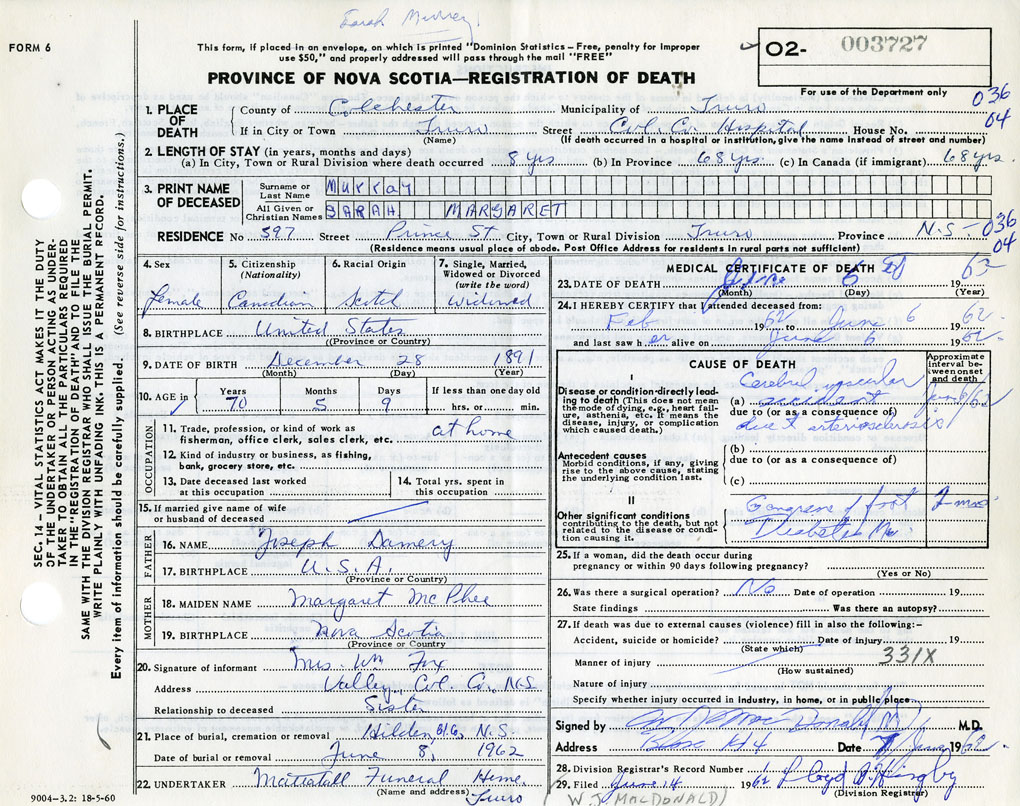 Sarah Murray
FORM 6
This form, if placed in an envelope, on which is printed "Dominion Statistics – Free, penalty for improper
use $50," and properly addressed will pass through the mail "FREE"
PROVINCE OF NOVA SCOTIA—REGISTRATION OF DEATH
O2- 003727
For use of the Department only
036
04
1. PLACE OF DEATH
County of Colchester Municipality of Truro
If in City or Town Truro Street Col. Co. Hospital House No.
(Name) (If death occurred in a hospital or institution, give name instead of street and number)
2. LENGTH OF STAY (in years, months and days)
(a) In City, Town or Rural Division where death occurred 8 yrs (b) In Province 68 yrs. (c) In Canada (if immigrant) 68 yrs.
3. PRINT NAME OF DECEASED
Surname or Last Name Murray
All Given or Christian Names SARAH MARGARET
RESIDENCE No 597 Street Prince St City, Town or Rural Division Truro Province N.S – 036
04
(Residence means usual place of abode. Post Office Address for residents in rural parts not sufficient)
4. Sex Female
5. Citizenship (Nationality) Canadian
6. Racial Origin Scotch
7. Single, Married, Widowed or Divorced (write the word) Widowed
8. BIRTHPLACE United States
((Province or Country)
9. DATE OF BIRTH December 28 1891
(Month) (Day) (Year)
10. AGE in Years 70 Months 5 Days 9 If less than one day old
hrs. or min.
OCCUPATION
11. Trade, profession, or kind of work as
fisherman, office clerk, sales clerk, etc. at home
12. Kind of industry or business, as fishing,
bank, grocery store, etc.
13. Date deceased last worked
at this occupation
14. Total yrs. spent in
this occupation
15. If married give name of wife
or husband of deceased
FATHER
16. NAME Joseph Damery
17. BIRTHPLACE U.S.A.
(Province or Country)
MOTHER
18. MAIDEN NAME Margaret McPhee
19. BIRTHPLACE Nova Scotia
(Province or Country
20. Signature of informant Mrs. Wm Fox
Address Valley, Col. Co, N.S
Relationship to deceased Sister
21. Place of burial, cremation or removal Hilden N.S.
Date of burial or removal June 8, 1962
22. UNDERTAKER Mattatall Funeral Home
(Name and address) Truro
9004-3.2: 18-5-60
MEDICAL CERTIFICATE OF DEATH
23. DATE OF DEATH June 6 19 62
(Month) (Day) (Year)
24. I HEREBY CERTIFY that I attended deceased from:
Feb 1962 to June 6 1962.
and last saw her alive on June 6 1962.
CAUSE OF DEATH
Approximate interval between onset and death
I
Disease or condition directly leading to death (This does not mean the mode of dying, e.g., heart failure, asthenia, etc. It means the disease, injury, or complication which caused death.)
Cerebral vascular
(a) accident June 6/62
due to (or as a consequence of)
due to arteriosclerosis
Antecedent causes
Morbid conditions, if any, giving rise to the above cause, stating the underlying condition last.
(b)
due to (or as a consequence of)
(c)
II
Other significant conditions
contributing to the death, but not related to the disease or condition causing it.
Gangrene of foot 2 mos
Diabetes Me
25. If a woman, did the death occur during
pregnancy or within 90 days following pregnancy?
(Yes or No)
26. Was there a surgical operation? No Date of operation 19
State findings Was there an autopsy?
27. If death was due to external causes (violence) fill in also the following:–
Accident, suicide or homicide? Date of injury 19
(State which) 331X
Manner of injury
(How sustained)
Nature of injury
Specify whether injury occurred in industry, in home, or in public place
Signed by MacDonald M.D.
Address Date 7 June 1962
28. Division Registrar's Record Number
29. Filed June 14 1962 Lloyd
(Division Registrar)
(W.J. MACDONALD)
SEC. 14 – VITAL STATISTICS ACT MAKES IT THE DUTY
OF THE UNDERTAKER OR PERSON ACTING AS UNDER-
TAKER TO OBTAIN ALL THE PARTICULARS REQUIRED
IN THE "REGISTRATION OF DEATH" AND TO FILE THE
SAME WITH THE DIVISION REGISTRAR WHO SHALL ISSUE THE BURIAL PERMIT.
WRITE PLAINLY WITH UNFADING INK. THIS IS A PERMANENT RECORD.
Every item of information should be carefully supplied. (See reverse side for instructions.)